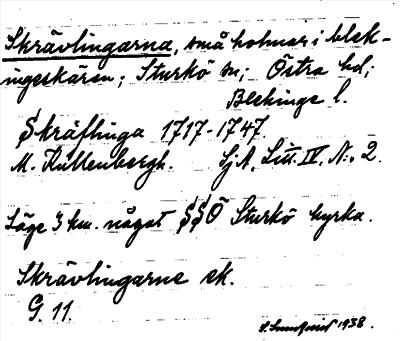 Skrävlingarna, små holmar i blek-
ingeskären; Sturkö sn; Östra hd;
Blekinge l.
Skräflinga 1717-1747.
M. Kullenbergh. Sj.A. Litt. IV. N:o 2.
Läge 3 km. något SSÖ Sturkö kyrka.
Skrävlingarne ek.
G. 11.
S. Sundquist 1938.